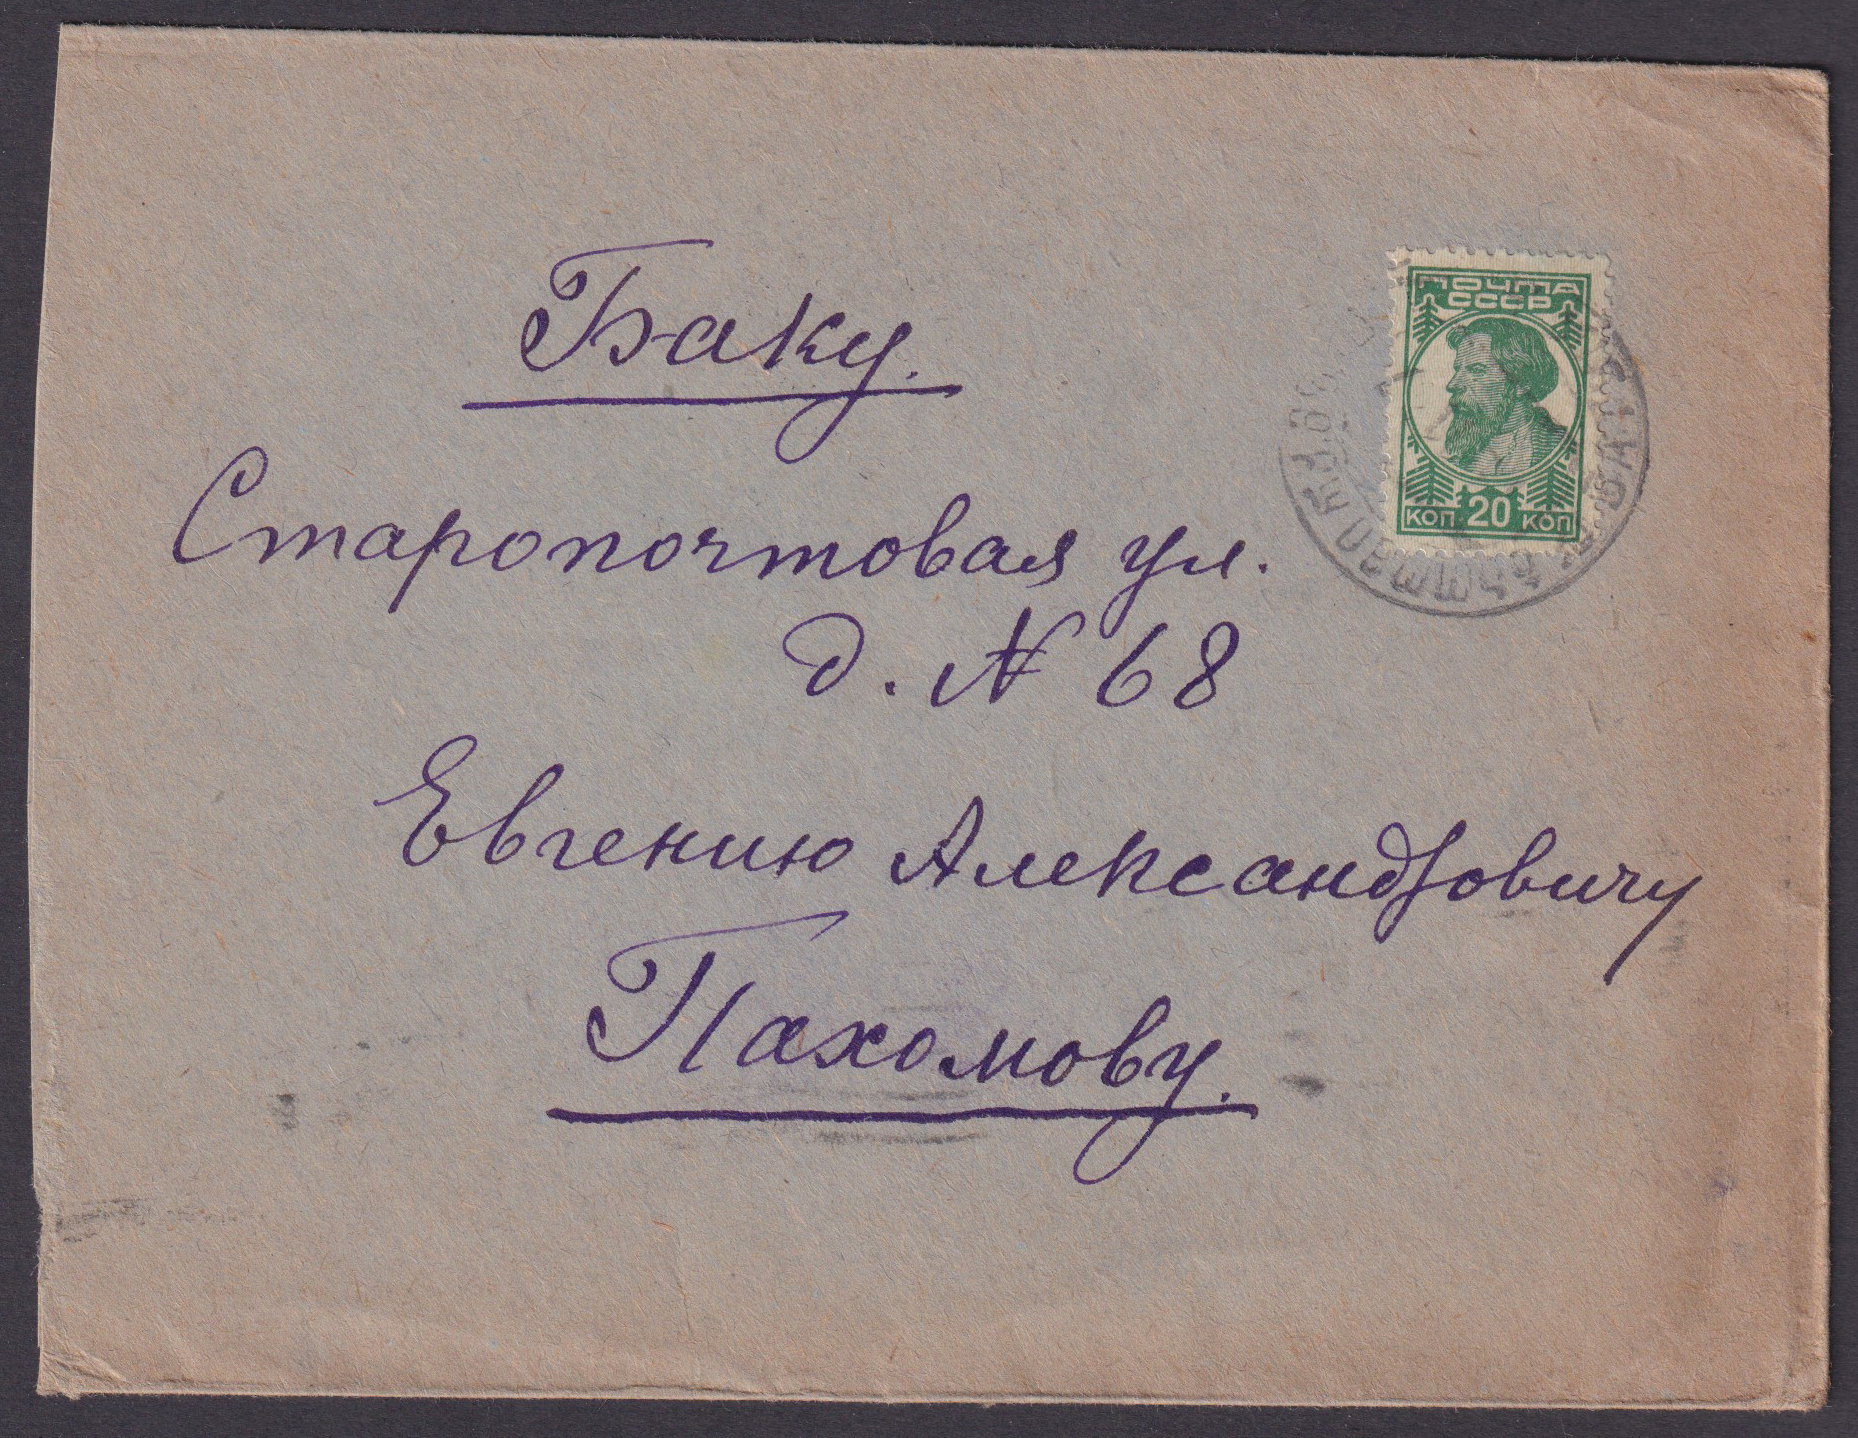 Баку.
Старопочтовая ул.
д. № 68
Евгению Александровичу
Пахомову.
ПОЧТА
СССР
КОП 20 КОП